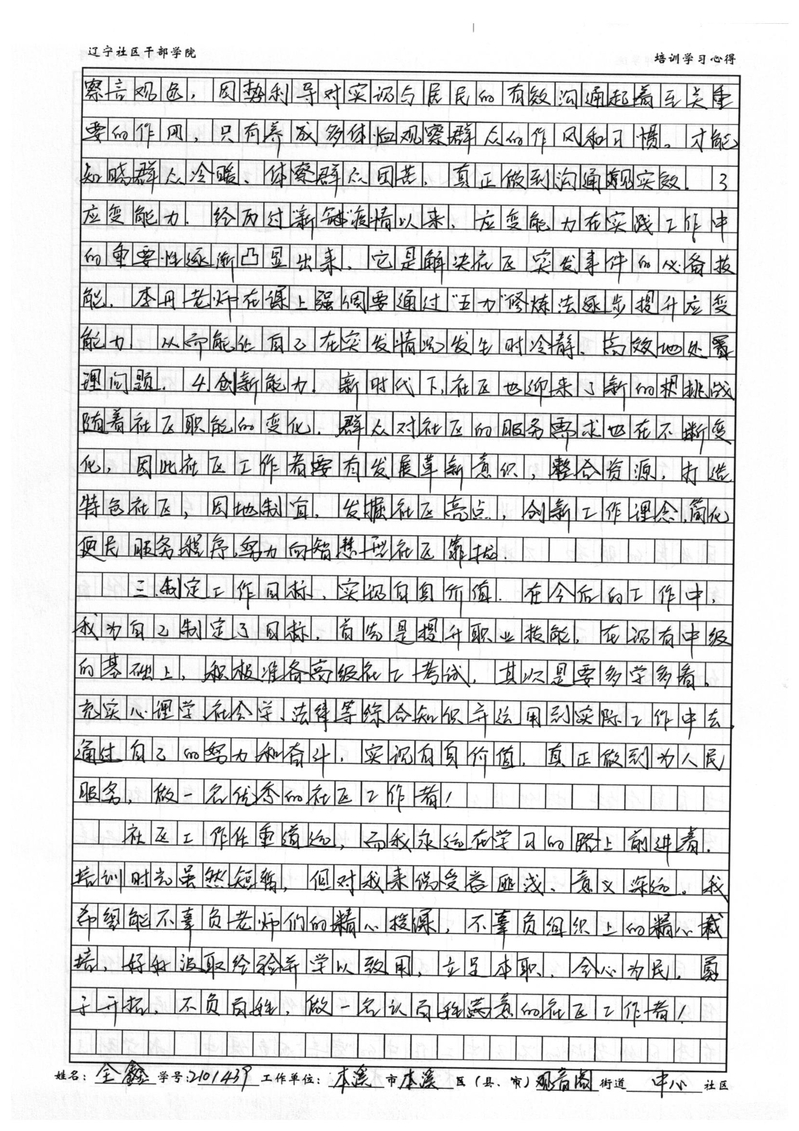 辽宁社区干部学院
培训学习心得
察言观色，因势利导对实现与居民的有效沟通起着至关重
要的作用，只有养成多体恤观察群众的作风和习惯。才能
知晓群众冷暖、体察群众困苦，真正做到沟通现实效。3
应变能力．经历过新冠疫情以来，应变能力在实践工作中
的重要性逐渐凸显出来，它是解决社区突发事件的必备技
能，李丹老师在课上强调要通过“五力”修炼法逐步提升应变
能力 从而能让自己在突发情况发生时冷静、高效地处置
理问题．4创新能力．新时代下，社区也迎来了新的挑战
随着社区职能的变化，群众对社区的服务需求也在不断变
化，因此社区工作者要有发展革新意识，整合资源，打造
特色社区，因地制宜，发掘社区亮点，创新工作理念，简化
便民服务程序，努力向智慧型社区靠拢．
三．制定工作目标，实现自身价值．在今后的工作中，
我为自己制定了目标，首先是提升职业技能，在现有中级
的基础上，积极准备高级社工考试，其次是要多学多看，
充实心理学、社会学、法律等综合知识并运用到实际工作中去，
通过自己的努力和奋斗，实现自身价值，真正做到为人民
服务，做一名优秀的社区工作者！
社区工作任重道远，而我永远在学习的路上前进着，
培训时光虽然短暂，但对我来说受益匪浅、意义深远。我
希望能不辜负老师们的精心授课，不辜负组织上的精心栽
培，好好汲取经验并学以致用，立足本职、全心为民，勇
于开拓，不负百姓，做一名让百姓满意的社区工作者！
姓名：全鑫 学号：2101439 工作单位：本溪 市 本溪 区（县、市） 观音阁 街道 中心 社区